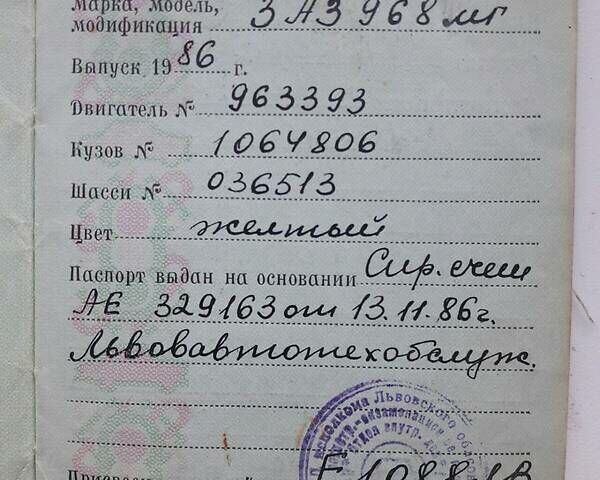 Марка, модель,
модификация ЗАЗ 968 мг
Выпуск 1986 г.
Двигатель № 963393
Кузов № 1064806
Шасси № 036513
Цвет желтый
Паспорт выдан на основании Спр. счет
АЕ 329163 от 13.11.86г.
Львовавтотехобслуж.
исполкома Львовского
отдел внутр.